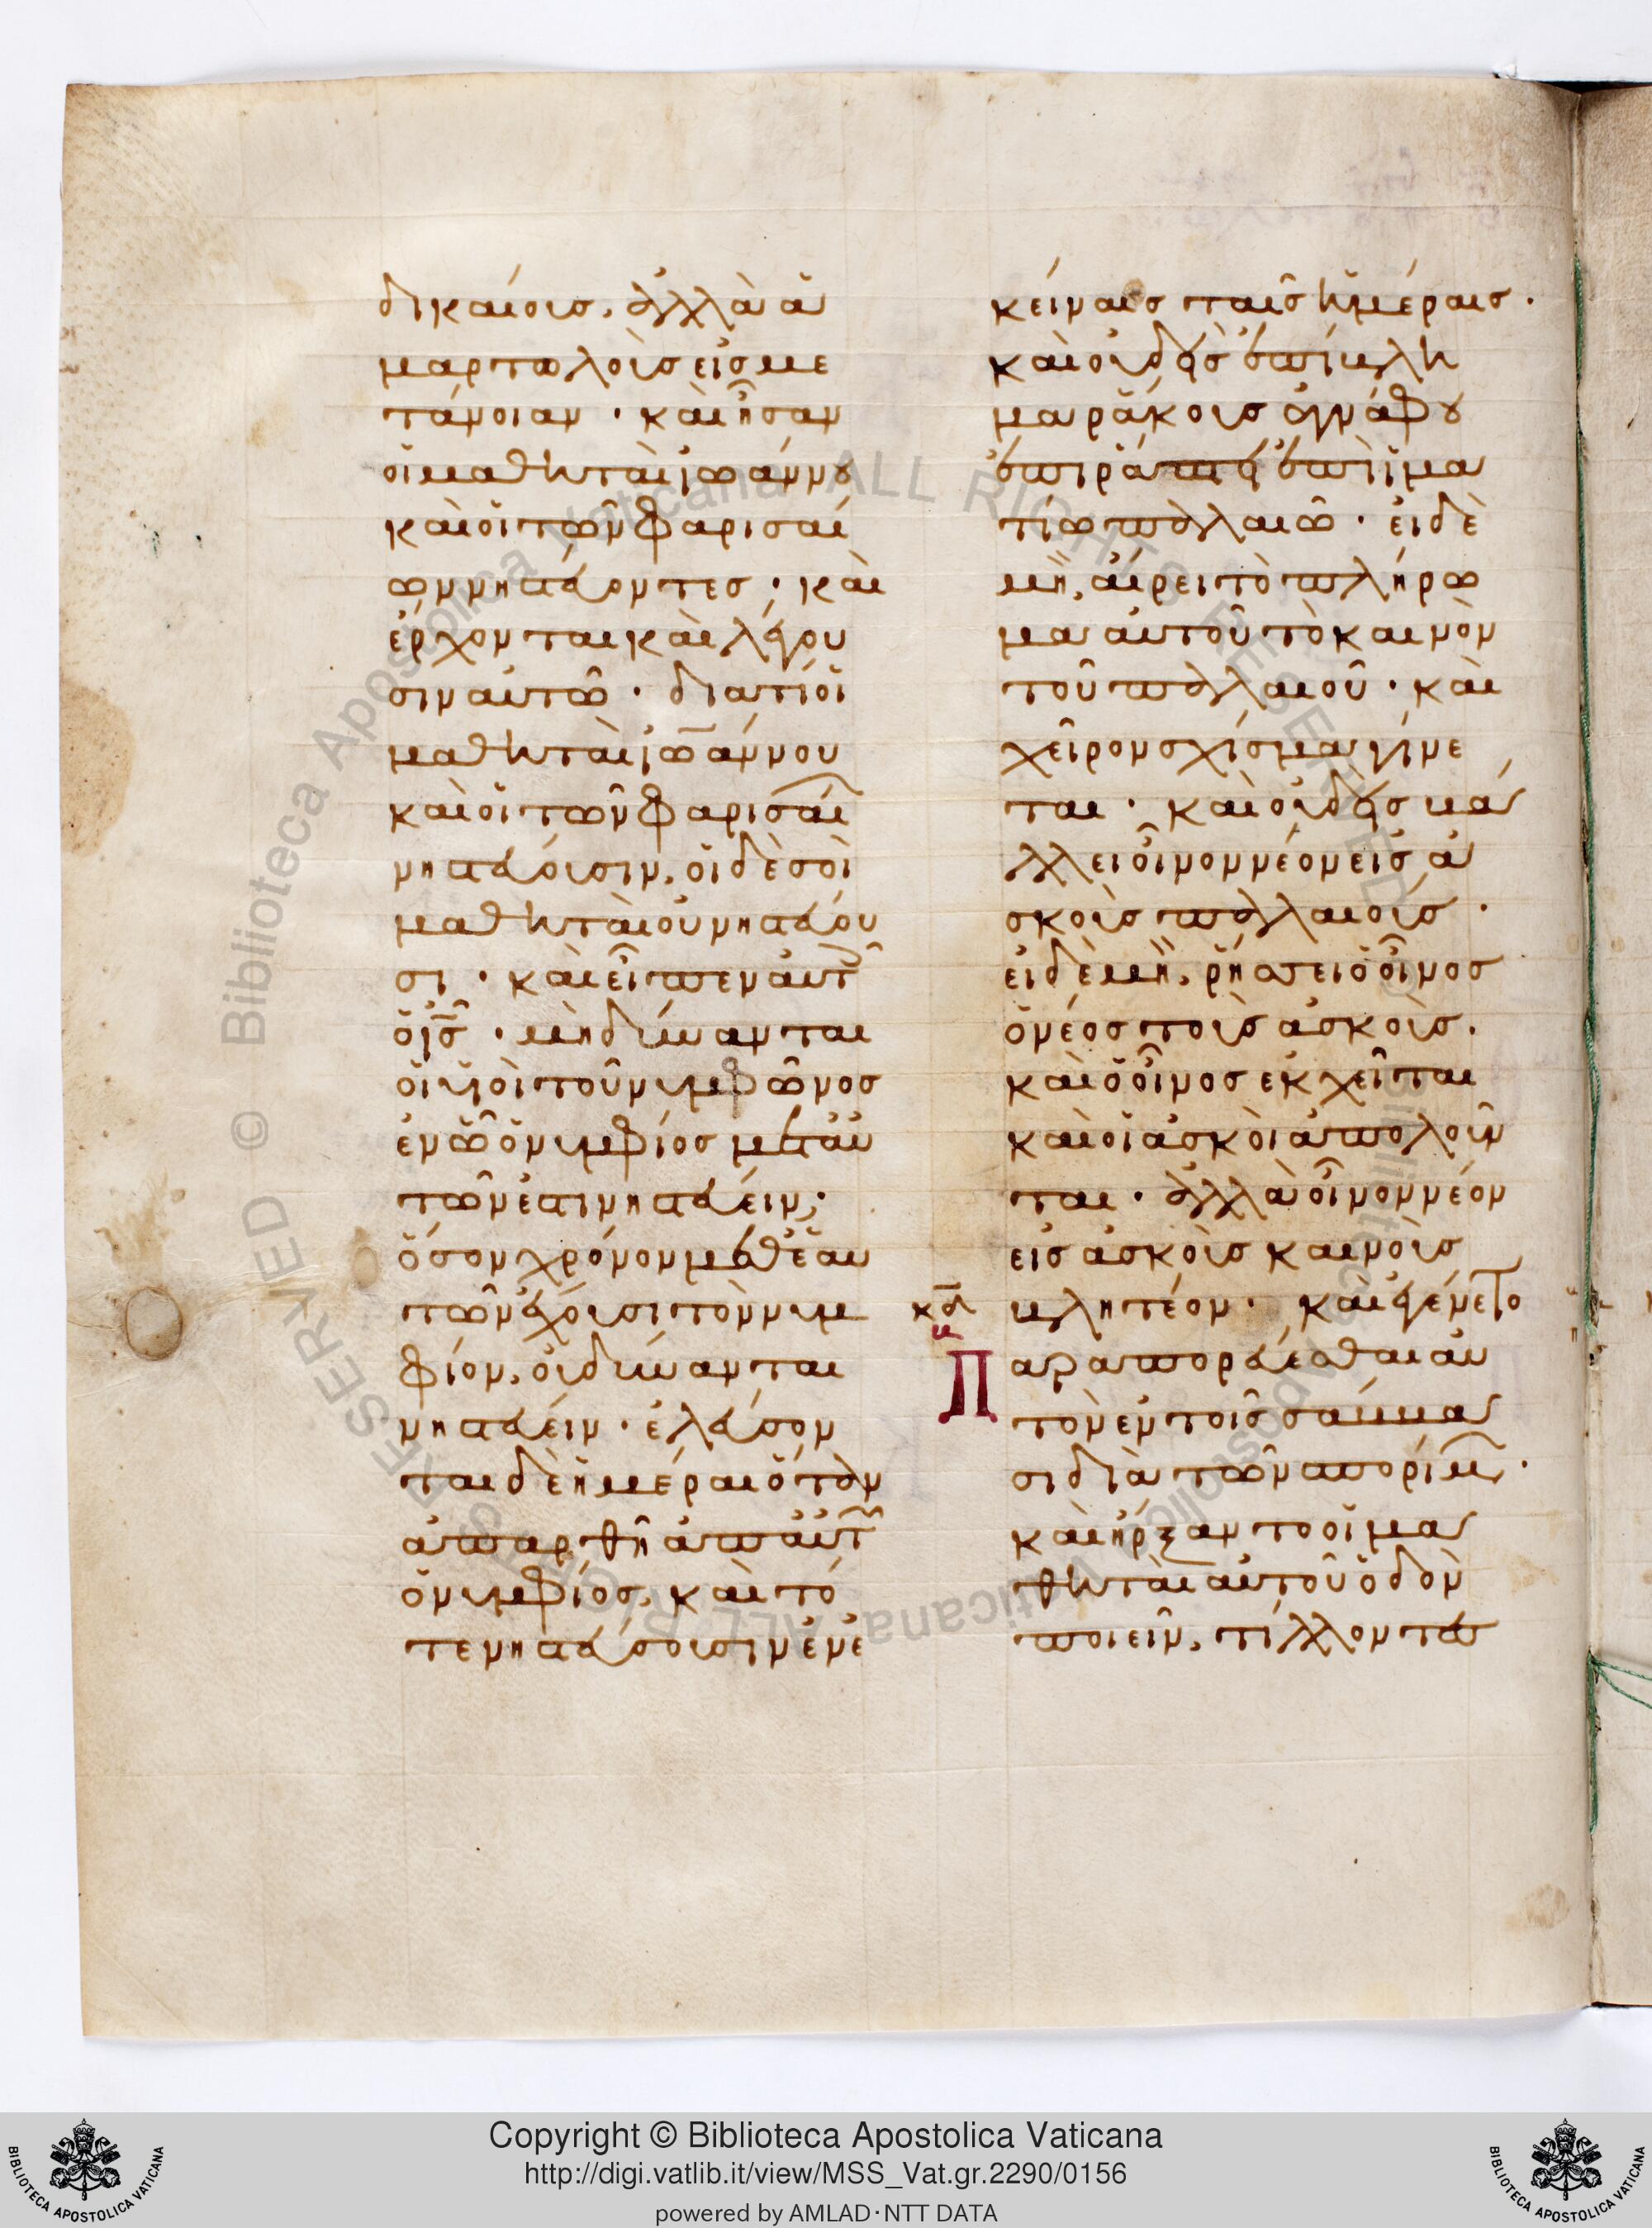 δικαίους, ἀλλὰ ἁ
μαρτωλοὺς εἰς με
τάνοιαν · καὶ ἦσαν
οἱ μαθηταὶ ἰωάννου
καὶ οἱ τῶν φαρισαί
ων νηστεύοντες · καὶ
ἔρχονται καὶ λέγου
σιν αὐτῶ · διατί οἱ
μαθηταὶ ἰωάννου
καὶ οἱ τῶν φαρισαί
νηστεύουσιν, οἱ δὲ σοὶ
μαθηταὶ οὐ νηστεύου
σι · καὶ εἶπεν αὐτ
ὁ ἰς · μὴ δύνανται
οἱ υἱοὶ τοῦ νυμφῶνος
ἐν ὧ ὁ νυμφίος μετ αὐ
τῶν ἐστι νηστεύειν;
ὅσον χρόνον μεθ ἑαυ
τῶν ἔχουσι τὸν νυμ
φίον, οὐ δύνανται
νηστεύειν · ἐλεύσον
ται δὲ ἡμέραι ὅταν
ἀπαρθῆ ἀπ αὐτ
ὁ νυμφίος, καὶ τό
τε νηστεύσουσιν ἐν ἐ
κείναις ταῖς ἡμέραις ·
καὶ οὐδεὶς ἐπίβλη
μα ῥάκους ἀγνάφου
ἐπιράπτει ἐπὶ ἱμα
τίω παλαιῶ · εἰ δὲ
μὴ, αἴρει τὸ πλήρω
μα αὐτοῦ τὸ καινὸν
τοῦ παλαιοῦ · καὶ
χεῖρον σχίσμα γίνε
ται · καὶ οὐδεὶς βά
λλει οἶνον νέον εἰς ἀ
σκοὺς παλαιούς ·
εἰ δὲ μὴ, ῥήσσει ὁ οἶνος
ὁ νέος τοὺς ἀσκοὺς.
καὶ ὁ οἶνος ἐκχεῖται
καὶ οἱ ἀσκοὶ ἀπολοῦν
ται · ἀλλὰ οἶνον νέον
εἰς ἀσκοὺς καινοὺς
κδ βλητέον · καὶ ἐγένετο
Παραπορεύεσθαι αὐ
τὸν ἐν τοῖς σάββα
σι διὰ τῶν σπορίμ ·
καὶ ἤρξαντο οἱ μα
θηταὶ αὐτοῦ ὁδὸν
ποιεῖν, τίλλοντες
Copyright © Biblioteca Apostolica Vaticana
http://digi.vatlib.it/view/MSS_Vat.gr.2290/0156
powered by AMLAD·NTT DATA